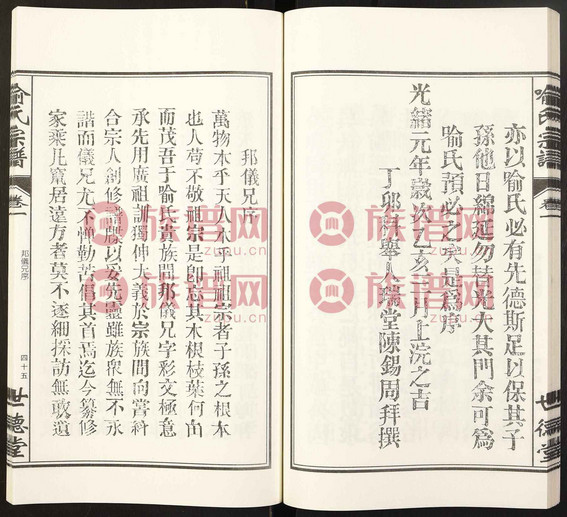 亦以喻氏必有先德斯足以保其子
孫他日緜延勿替光大其門余可為
喻氏預必之矣是爲序
光緒元年歲次乙亥月上浣之吉
丁卯科舉人瑞堂陳錫周拜撰
喻氏宗譜
卷一
世德堂
邦儀兄序
萬物本乎天人本乎祖祖宗者子孫之根本
也人苟不敬祖宗是即忘其木根枝葉何由
而茂吾于喻氏貴族閒邦儀兄字彩文極意
承先用廣祖訓獨伸大義於宗族間向嘗糾
合宗人創修譜牒以妥先靈雖族衆無不永
諧而儀兄尤不憚勤苦倡其首焉迄今纂修
家乘凡竄居遠方者莫不逐細採訪無敢遺
喻氏宗譜
卷一
邦儀兄序
四十五
世德堂
族谱网
zupu.cn
族谱网
zupu.cn
族谱网
zupu.cn
族谱网
zupu.cn